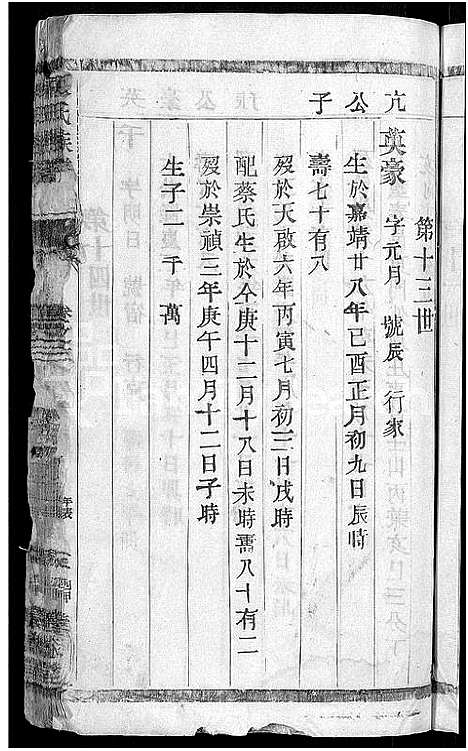 第十三世
亢公子
英豪 字元月 號辰 行家
生於嘉靖廿八年己酉正月初九日辰時
壽七十有八
歿於天啟六年丙寅七月初三日戌時
配蔡氏生於仝庚十二月十八日未時壽八十有二
歿於崇禎三年庚午四月十二日子時
生子二 千 萬